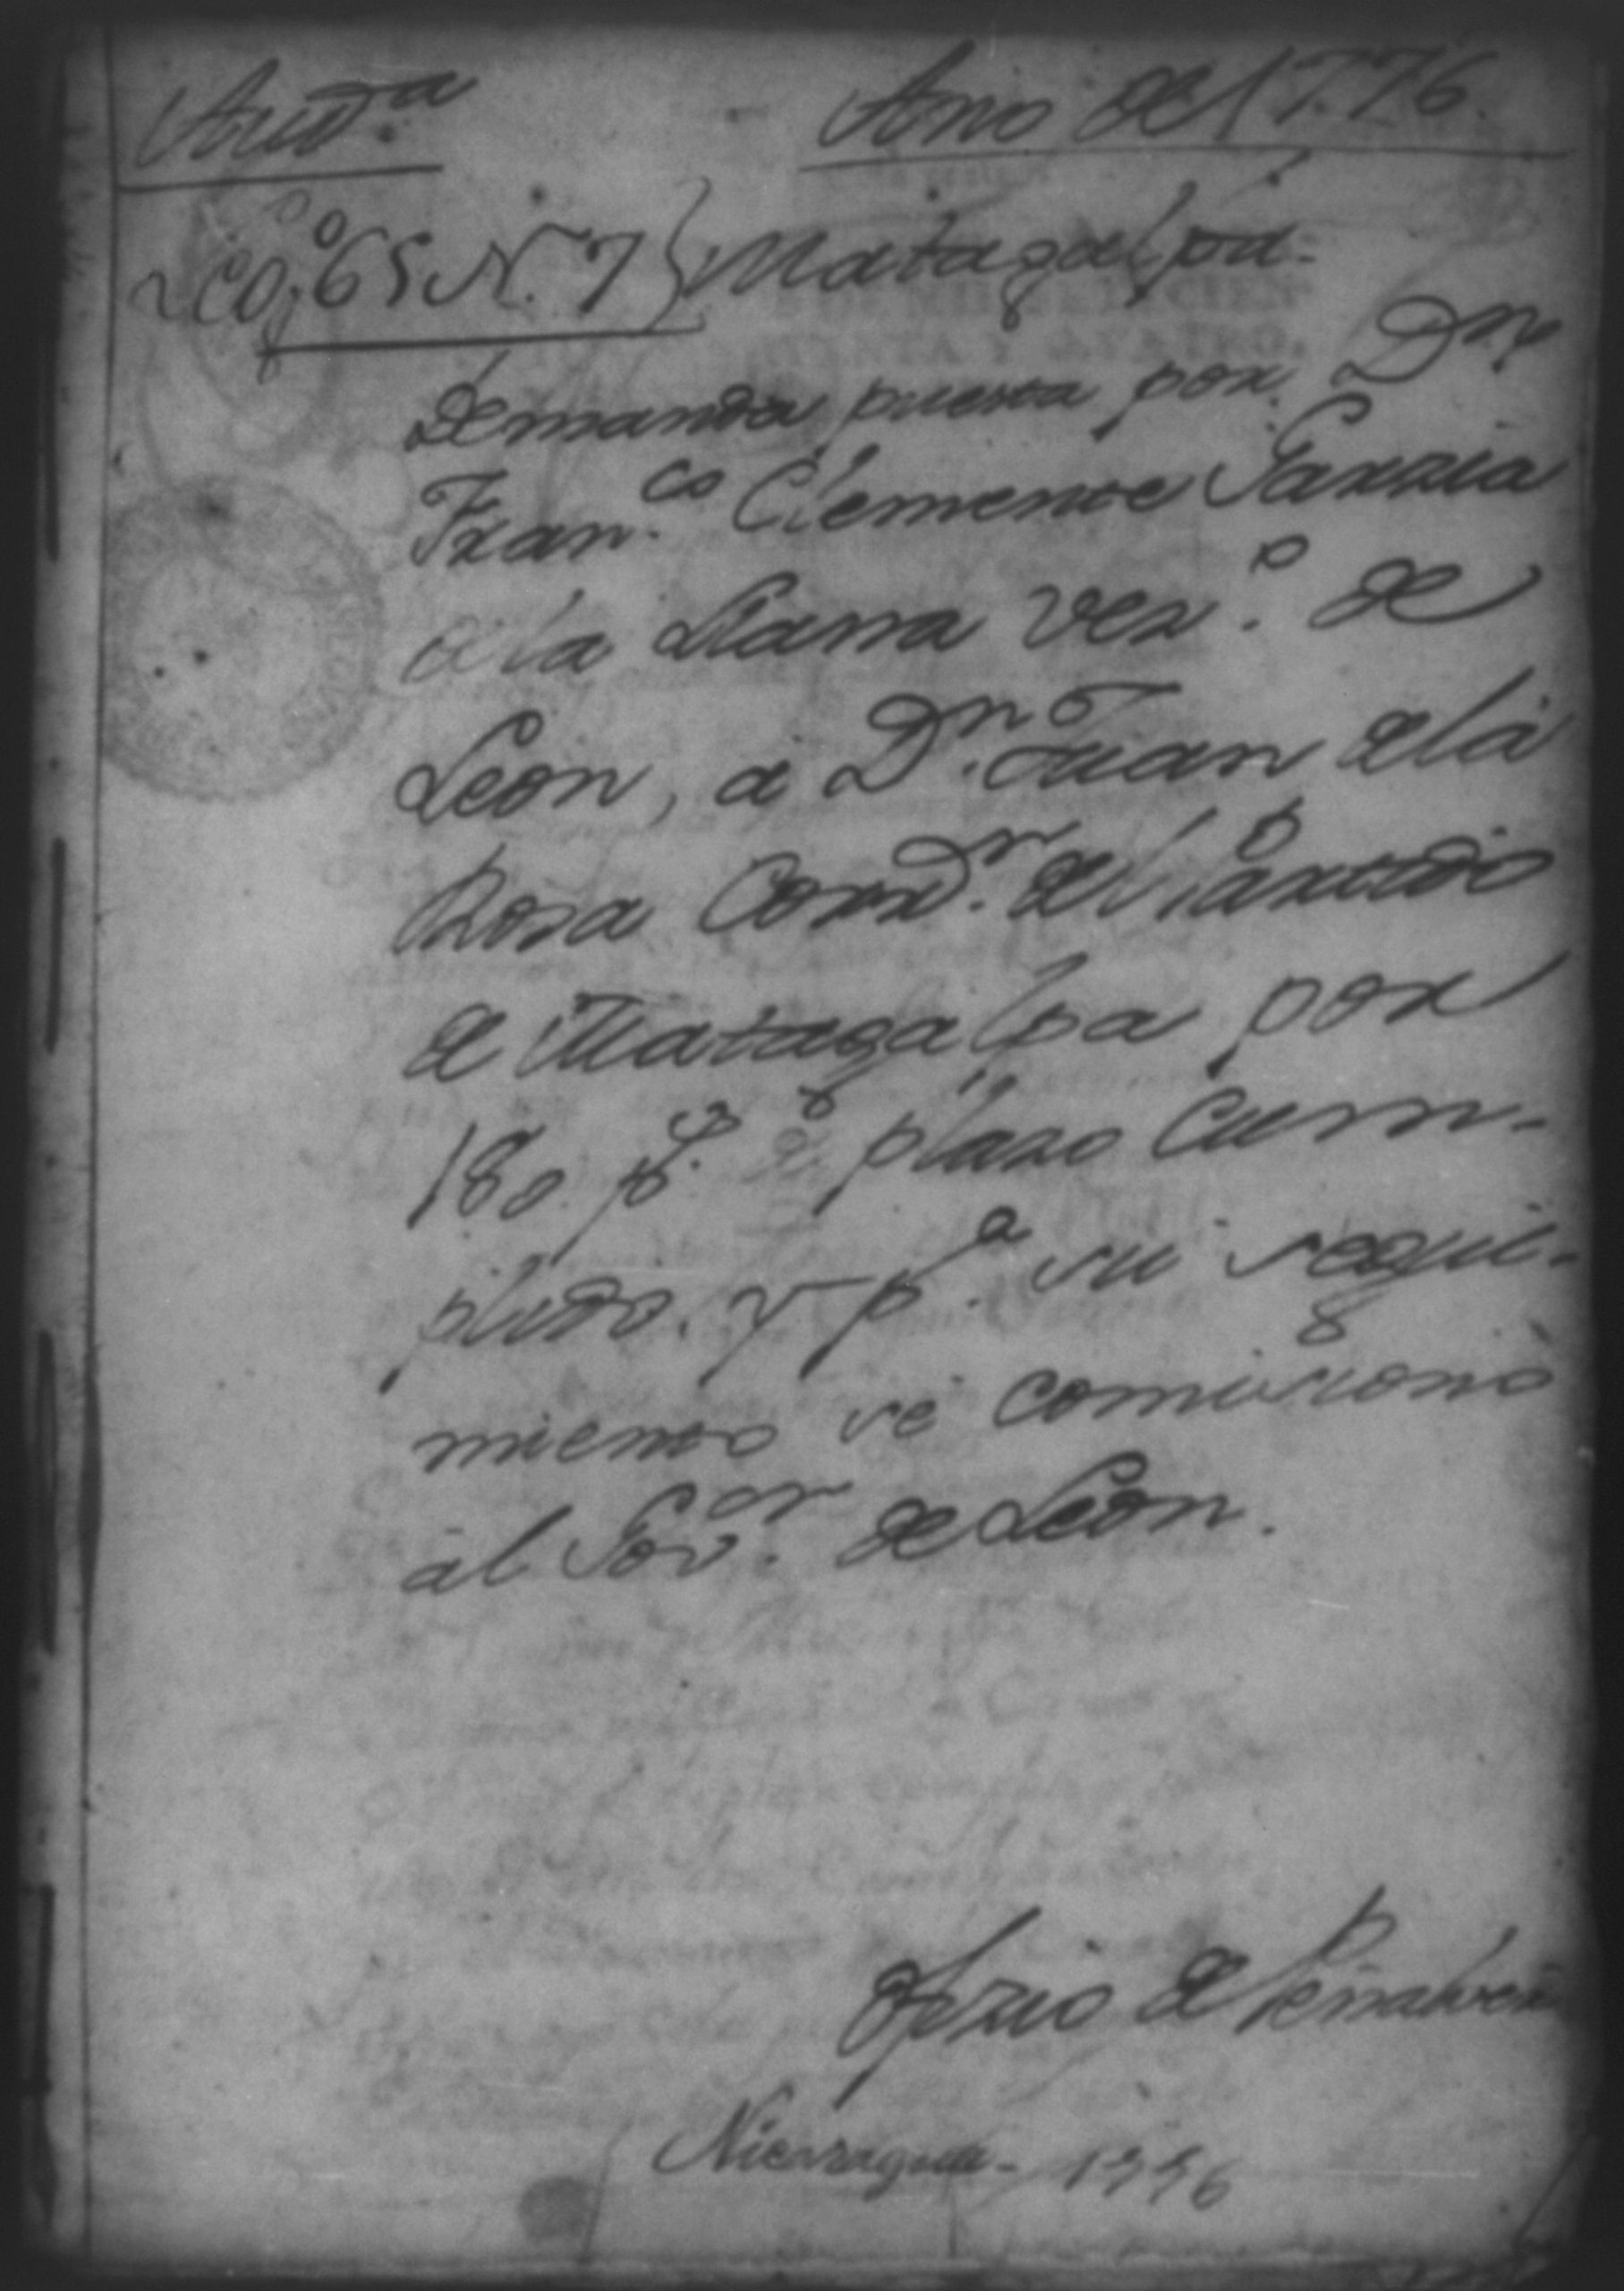 Aud.a Año de 1776.
Leg.o 65 N. 7 } Matagalpa.
Demanda puesta por Dn
Fran.co Clemente Garzia
de la Llana vez.o de
Leon, a Dn. Juan de la
Rosa Corr.r del Partido
de Matagalpa por
180 p.s de plazo cum-
plido. y p.a su segui-
miento se comisionò
al Gov.or de Leon.
Ofizio de Peñalver
Nicaragua - 1776